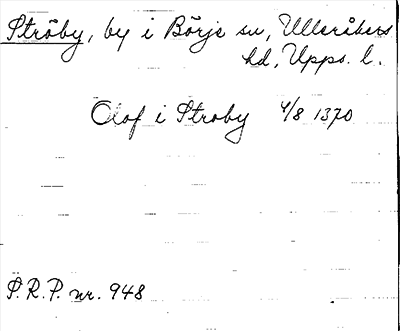 Ströby, by i Börje sn, Ulleråkers
hd, Upps. l.
Olof i Stroby 4/8 1370
S.R.P. nr. 948